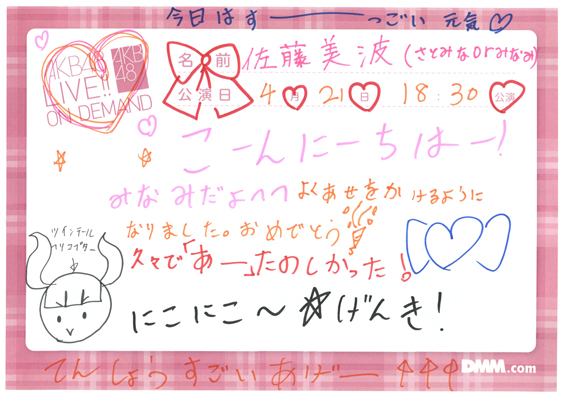 今日はすーーーーっごい 元気♡
AKB48 LIVE!! ON DEMAND
AKB48
名前 佐藤美波(さとみなorみなみ)
公演日 4月21日 18:30公演
こーんにーちはー!
みなみだよへへ よくあせをかけるように
なりました。おめでとう
久々で「あー」たのしかった!
ツインテール
ヘリコプター
にこにこ〜☆げんき!
てんしょうすごいあげー ↑↑↑
DMM.com